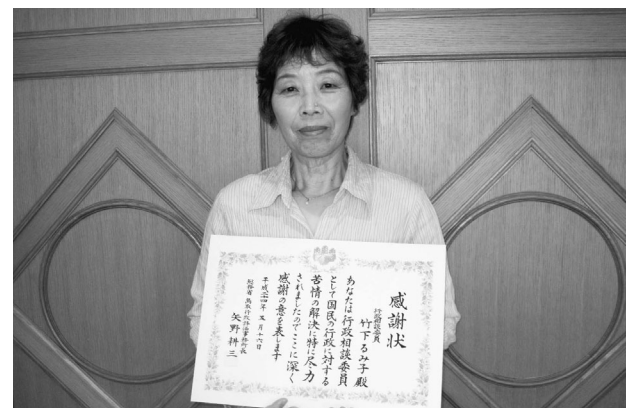 感謝状
行政相談委員
竹下るみ子 殿
あなたは行政相談委員
として国民の行政に対する
苦情の解決に特に尽力
されましたのでここに深く
感謝の意を表します
平成二四年五月十六日
総務省鳥取行政評価事務所長
矢野耕三